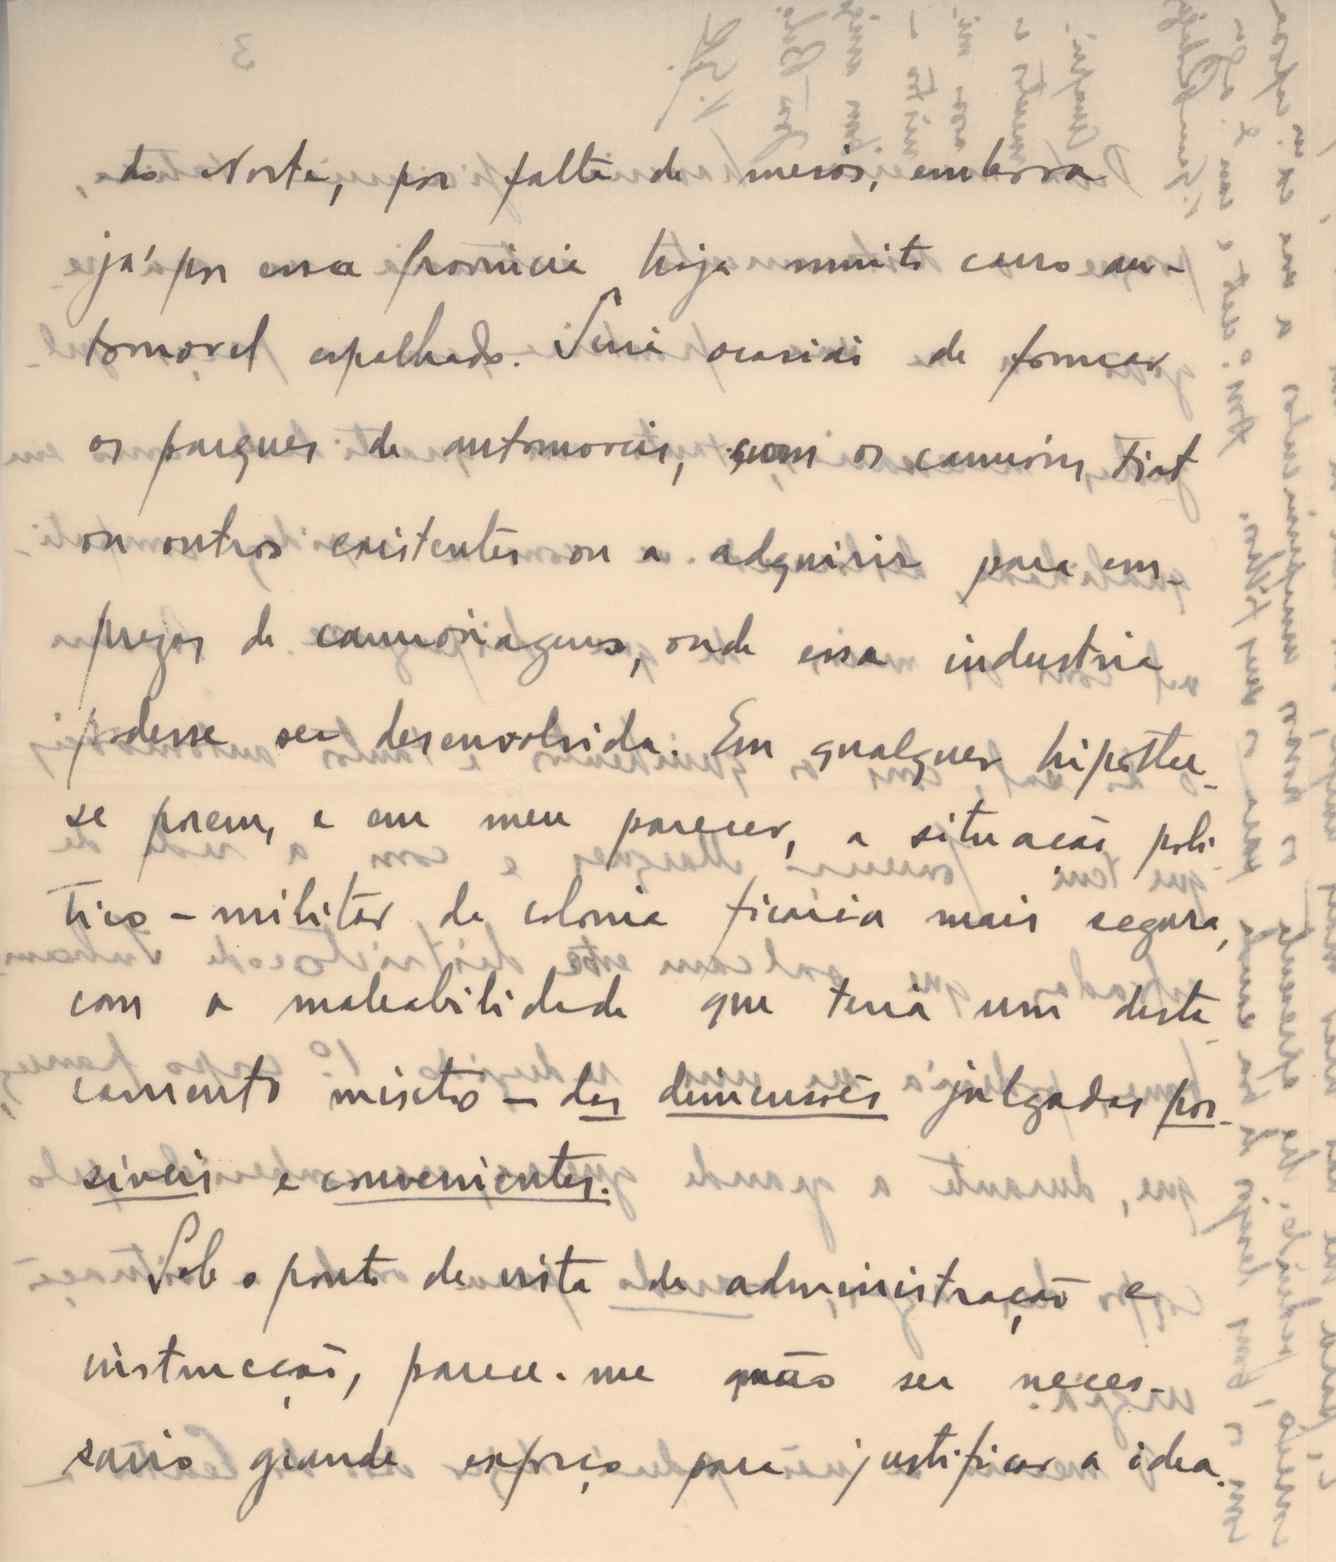 do Norte, por falta de meios, embora
já por essa Provincia haja muito carro au-
tomovel espalhado. Seria ocasião de formar
os parques de automoveis, com os camiões Fiat
ou outros existentes ou a adquirir para em-
prezas de camionagens, onde essa industria
podesse ser desenvolvida. Em qualquer hipothe-
se porem, e em meu parecer, a situação poli
tico-militar da colonia ficaria mais segura,
com a maleabilidade que teria um desta
camento mixto — das dimensões julgadas pos-
siveis e convenientes.
Sob o ponto de vista de administração e
instrucção, parece-me não ser neces-
sario grande esforço para justificar a idea.